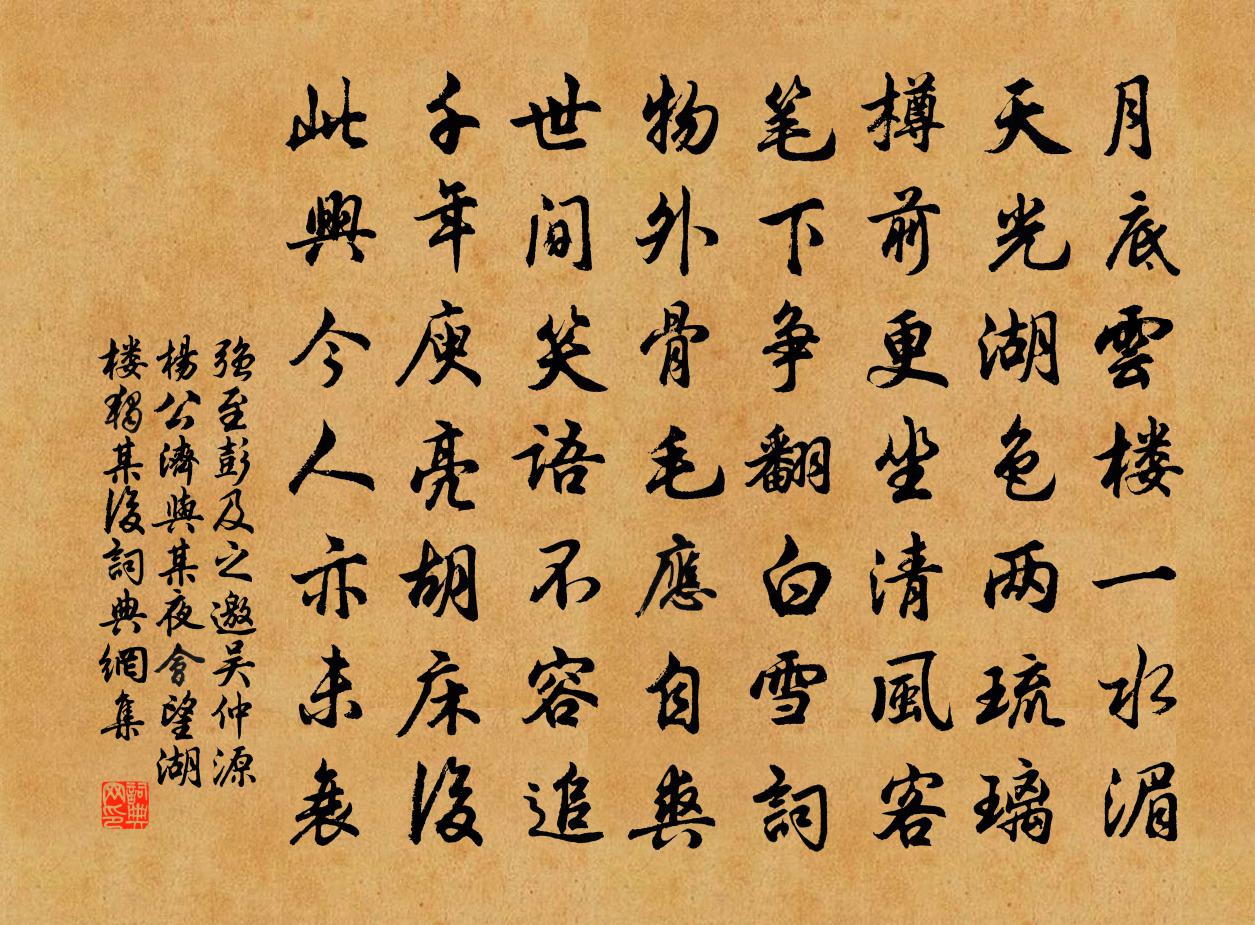 月底雲楼一水湄
天光湖色两琉璃
樽前更坐清風客
笔下争翻白雪詞
物外骨毛應自爽
世间笑語不容追
千年庾亮胡床後
此興今人亦未衰
強至彭及之邀吴仲源
楊公濟與某夜會望湖
楼獨某後詞典網集
詞典网印